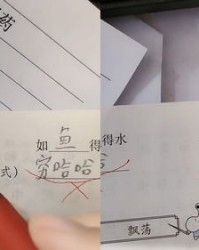 药
如 鱼 得得水
式) 穷哈哈
飘荡